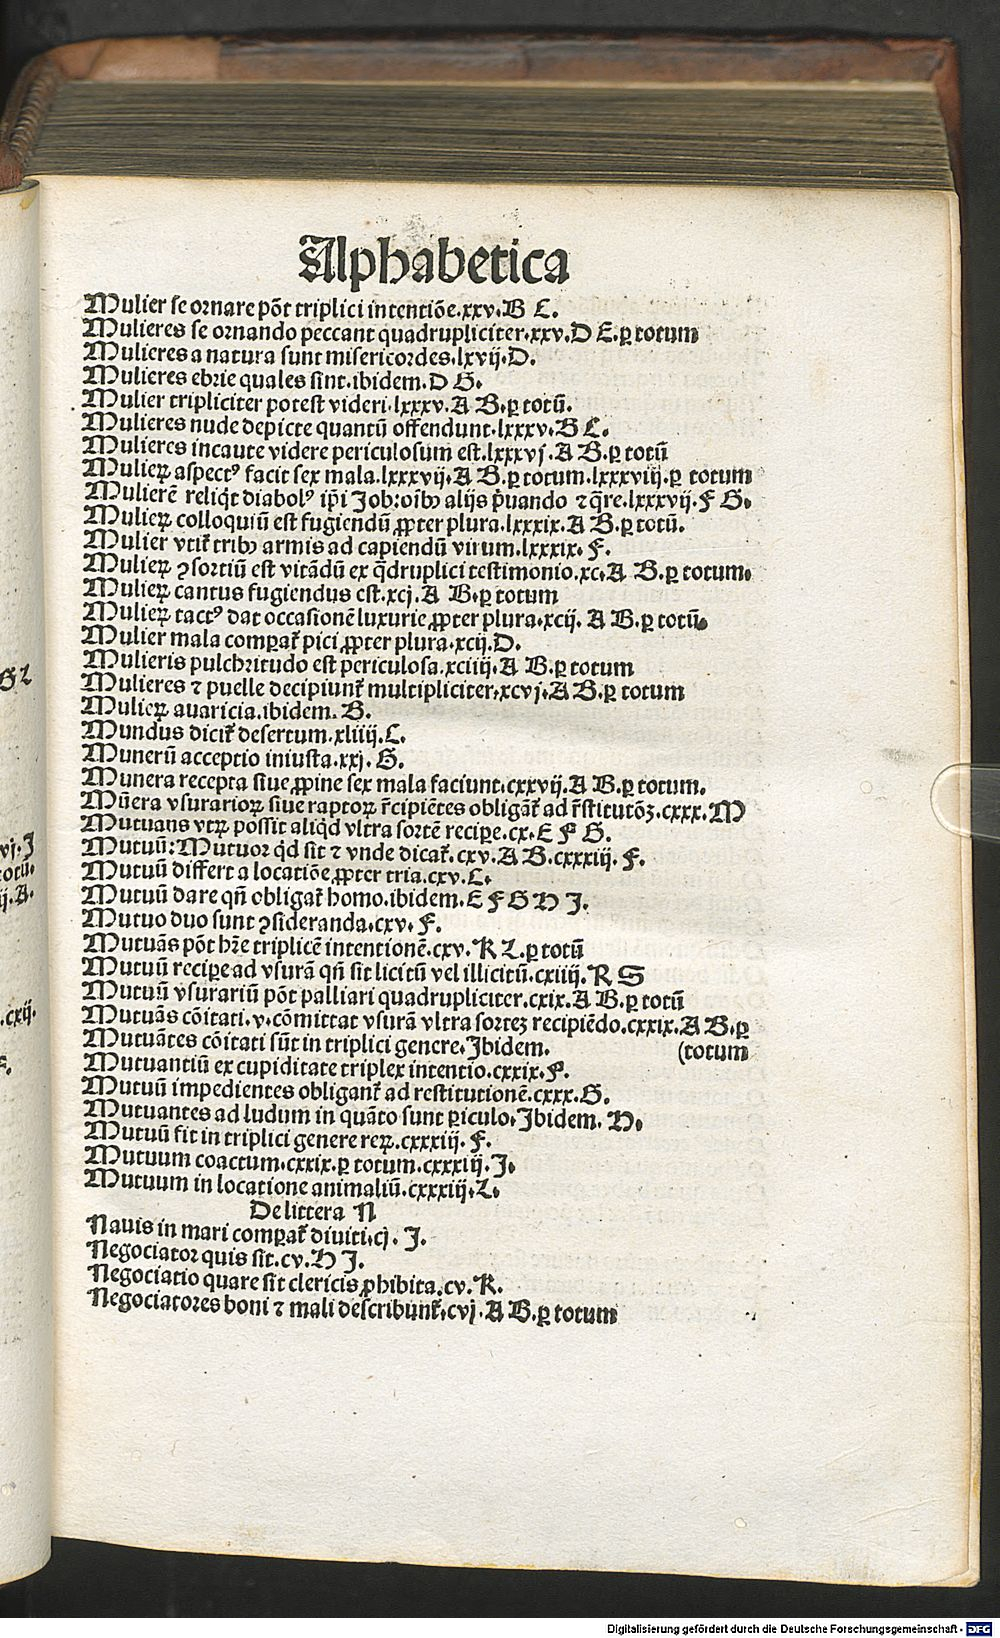 Alphabetica
Mulier se ornare põt triplici intentiõe.xxv.B C.
Mulieres se ornando peccant quadrupliciter.xxv.D E.ꝑ totum
Mulieres a natura sunt misericordes.lxvij.D.
Mulieres ebrie quales sint.ibidem.D G.
Mulier tripliciter potest videri.lxxxv.A B.ꝑ totũ.
Mulieres nude depicte quantũ offendunt.lxxxv.B C.
Mulieres incaute videre periculosum est.lxxxvj.A B.ꝑ totũ
Mulieꝝ aspectꝰ facit sex mala.lxxxvij.A B.ꝑ totum.lxxxviij.ꝑ totum
Mulierẽ reliq̃t diabolꝰ ip̃i Job:oĩbꝫ alijs p̃uando ⁊ q̃re.lxxxvij.F G.
Mulieꝝ colloquiũ est fugiendũ ꝓpter plura.lxxxix.A B.ꝑ totũ.
Mulier vtit̃ tribꝫ armis ad capiendũ virum.lxxxix.F.
Mulieꝝ ꝯsortiũ est vitãdũ ex q̃druplici testimonio.xc.A B.ꝑ totum.
Mulieꝝ cantus fugiendus est.xcj.A B.ꝑ totum
Mulieꝝ tactꝰ dat occasionẽ luxurie ꝓpter plura.xcij. A B.ꝑ totũ.
Mulier mala comparat̃ pici ꝓpter plura.xcij.D.
Mulieris pulchritudo est periculosa.xciiij.A B.ꝑ totum
Mulieres ⁊ puelle decipiunt̃ multipliciter.xcvj.A B.ꝑ totum
Mulieꝝ auaricia.ibidem.B.
Mundus dicit̃ desertum.xliiij.C.
Munerũ acceptio iniusta.xxj.G.
Munera recepta siue ꝓpine sex mala faciunt.cxxvij.A B.ꝑ totum.
Mũera vsurarioꝝ siue raptoꝝ r̃cipiẽtes obligãt̃ ad r̃stitutõꝫ.cxxx.M
Mutuans vtꝝ possit aliq̃d vltra sortẽ recipe.cx.E F G.
Mutuũ:Mutuor q̃d sit ⁊ vnde dicat̃.cxv.A B.cxxxiij. F.
Mutuũ differt a locatiõe ꝓpter tria.cxv.C.
Mutuũ dare qñ obligat̃ homo.ibidem.E F G H J.
Mutuo duo sunt ꝯsideranda.cxv.F.
Mutuãs põt hr̃e triplicẽ intentionẽ.cxv.K L.ꝑ totũ
Mutuũ recipe ad vsurã qñ sit licitũ vel illicitũ.cxiiij.R S
Mutuũ vsurariũ põt palliari quadrupliciter.cxix.A B.ꝑ totũ
Mutuãs cõitati.v.cõmittat vsurã vltra sorteꝫ recipiẽdo.cxxix.A B.ꝑ
Mutuãtes cõitati sũt in triplici genere.Jbidem. (totum
Mutuantiũ ex cupiditate triplex intentio.cxxix.F.
Mutuũ impedientes obligant̃ ad restitutionẽ.cxxx.G.
Mutuantes ad ludum in quãto sunt ꝑiculo.Jbidem. H.
Mutuũ fit in triplici genere reꝝ.cxxxiij. F.
Mutuum coactum.cxxix.ꝑ totum.cxxxiij.J.
Mutuum in locatione animaliũ.cxxxiij.L.
De littera N
Nauis in mari comparat̃ diuiti.cj. J.
Negociator quis sit.cv.H J.
Negociatio quare sit clericis ꝓhibita.cv.K.
Negociatores boni ⁊ mali describũnt̃.cvj.A B.ꝑ totum
Digitalisierung gefördert durch die Deutsche Forschungsgemeinschaft - DFG